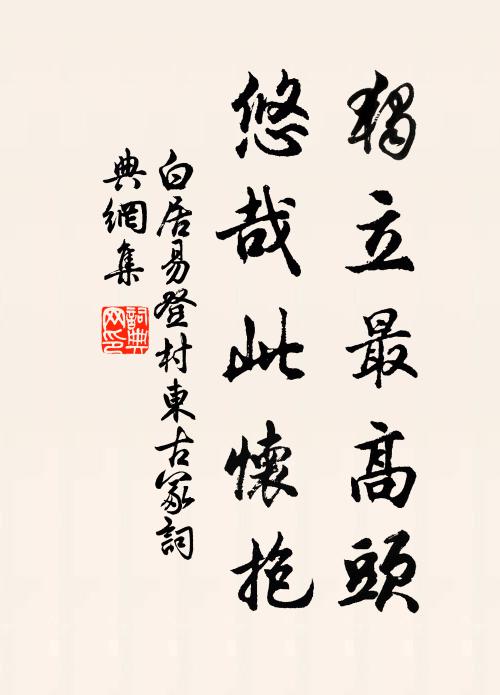 獨立最高頭
悠哉此懷抱
白居易登村東古冢詞
典網集
詞典
网印